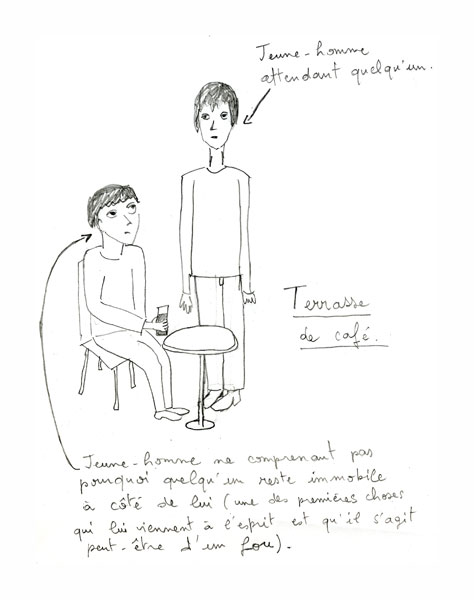 Jeune-homme
attendant quelqu'un.
Terrasse
de café.
Jeune-homme ne comprenant pas
pourquoi quelqu'un reste immobile
à côté de lui (une des premières choses
qui lui viennent à l'esprit est qu'il s'agit
peut-être d'un fou).